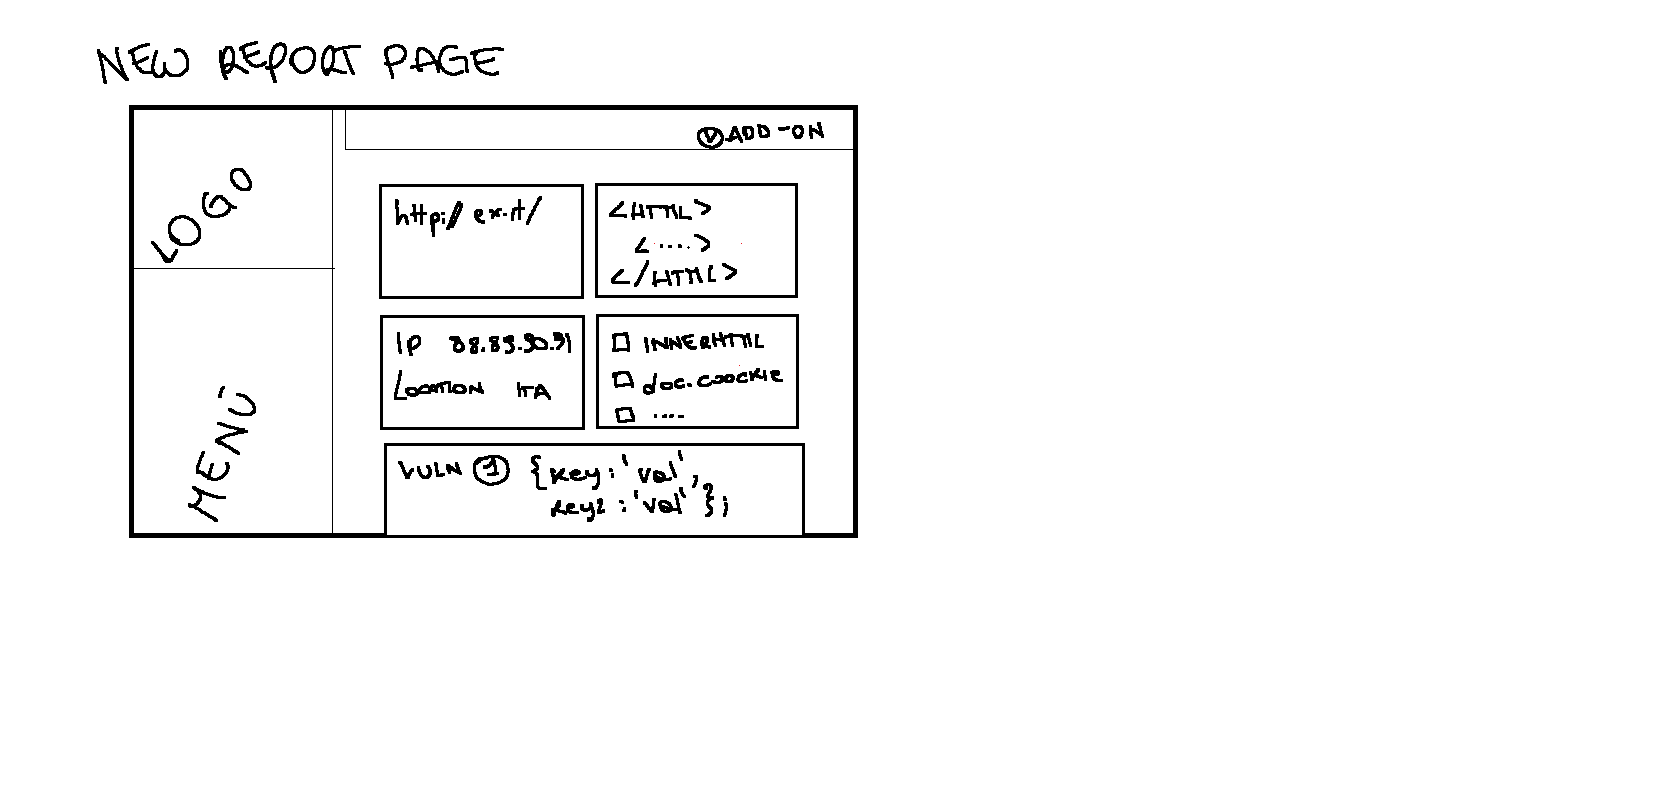 NEW REPORT PAGE
LOGO
MENÙ
V ADD-ON
http://ex.it/
<HTML>
<....>
</HTML>
IP 88.89.90.91
LOCATION ITA
INNERHTML
doc.coockie
....
VULN 1 {key:'val',
key2:'val'};